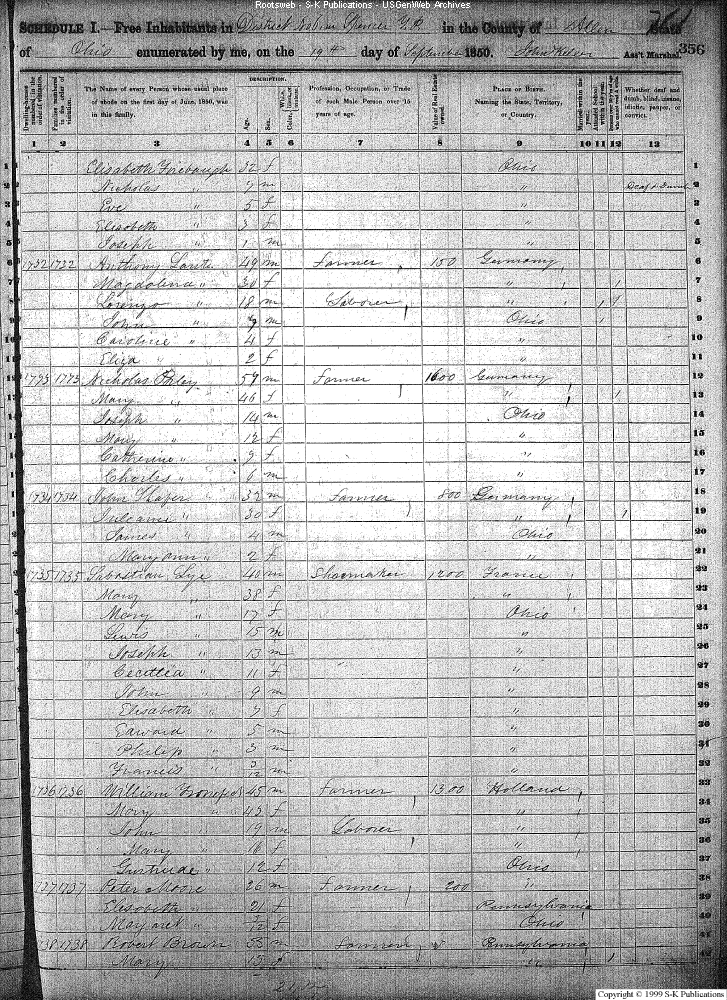 Rootsweb - S-K Publications - USGenWeb Archives
SCHEDULE I.—Free Inhabitants in District No Spencer T.P. in the County of Allen State
of Ohio enumerated by me, on the 19th day of September 1850. Ass't Marshal. 356
Dwelling-houses numbered in the order of visitation.
Families numbered in the order of visitation.
The Name of every Person whose usual place of abode on the first day of June, 1850, was in this family.
DESCRIPTION.
Age.
Sex.
Color, White, black, or mulatto.
Profession, Occupation, or Trade of each Male Person over 15 years of age.
Value of Real Estate owned
PLACE OF BIRTH. Naming the State, Territory, or Country.
Married within the year.
Attended School within the year.
Whether deaf and dumb, blind, insane, idiotic, pauper, or convict.
1 2 3 4 5 6 7 8 9 10 11 12 13
1 Elisabeth 32 f Ohio 1
2 Nicholas " 7 m " Deaf & Dumb 2
3 Eve " 5 f " 3
4 Elisabeth " 3 f " 4
5 Joseph " 1 m " 5
6 1732 1732 Anthony 49 m Farmer 150 Germany 6
7 Magdalena " 30 f " 7
8 Lorenzo " 18 m Laborer " 8
9 John " m Ohio 9
10 Caroline " 4 f " 10
11 Eliza " 2 f " 11
12 1733 1733 Nicholas 59 m Farmer 1600 Germany 12
13 Mary " 46 f " 13
14 Joseph " 14 m Ohio 14
15 Mary " 12 f " 15
16 Catherine " 9 f " 16
17 Charles " 6 m " 17
18 1734 1734 John 32 m Farmer 800 Germany 18
19 " 30 f " 19
20 James " 4 m Ohio 20
21 Mary Ann " 2 f " 21
22 1735 1735 Sebastian Lye 40 m Shoemaker 1200 France 22
23 Mary " 38 f " 23
24 Mary " 17 f Ohio 24
25 Lewis " 15 m " 25
26 Joseph " 13 m " 26
27 Cecillea " 11 f " 27
28 John " 9 m " 28
29 Elisabeth " 7 f " 29
30 Edward " 5 m " 30
31 Philip " 3 m " 31
32 Francis " 3/12 m " 32
33 1736 1736 William 45 m Farmer 1300 Holland 33
34 Mary " 43 f " 34
35 John " 19 m Laborer " 35
36 Mary " 16 f " 36
37 Gertrude " 12 f Ohio 37
38 1737 1737 Peter Moore 26 m Farmer 200 " 38
39 Elisabeth " 21 f Pennsylvania 39
40 Margaret " f Ohio 40
41 1738 1738 Robert Brown 55 m Pennsylvania 41
42 Mary " 15 f " 42
Copyright © 1999 S-K Publications